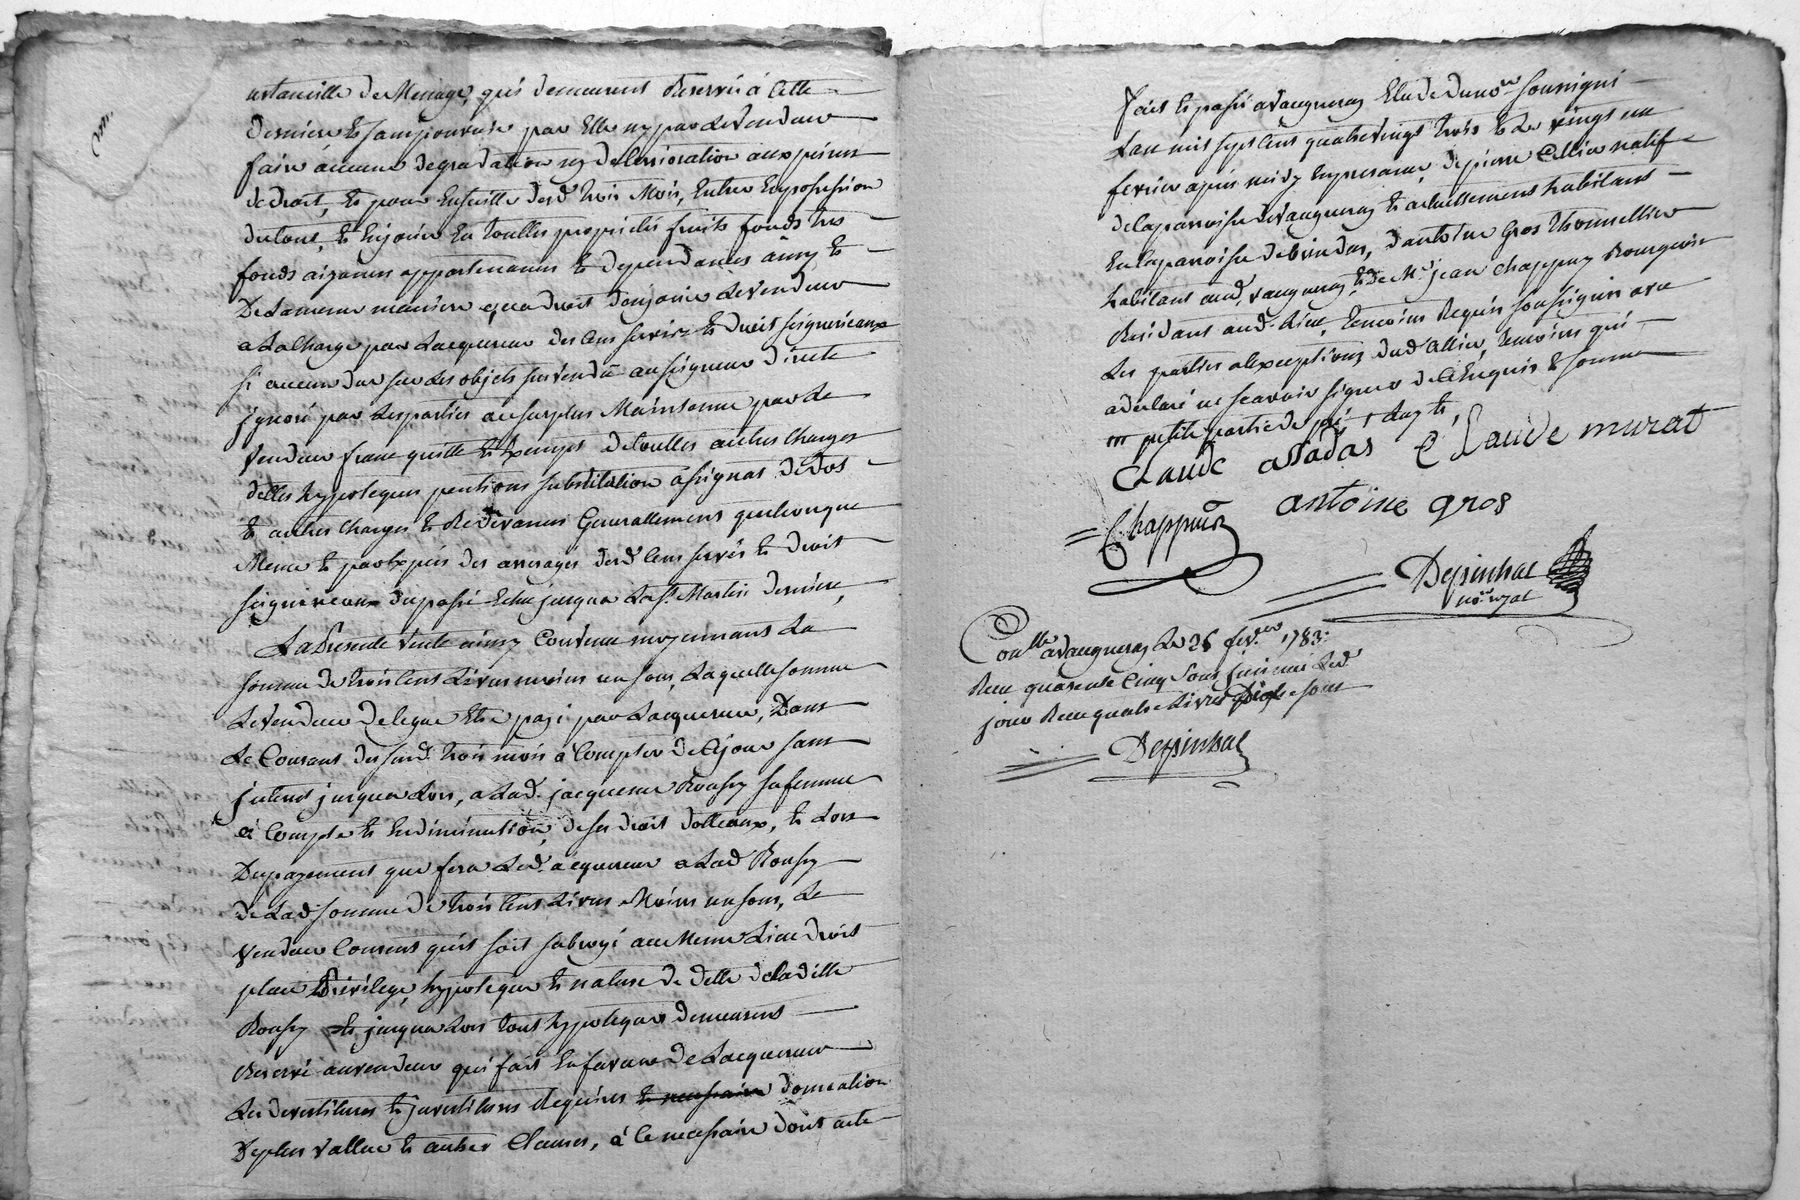 ustancille de Menage, qui demeurent Reservé á cette
derniere et sans pouvoir par Elle ny par Le Vendeur
faire áucune degradation ny deterrioration aux peines
de droit, et pour Ensuitte desd. trois Mois, Entrer En possession
du tout, et En jouir En touttes proprietés fruits fonds tres
fonds aizances appartenances et dependances áinsy et
De La meme maniere qu'a droit d'en jouir Le Vendeur
a La Charge par L'acquereur des Cens servis et droit seigneuriaux
si aucun du sur Les objets sus vendu au seigneur directe
jgnoré par Les parties áu surplus Maintenue par Le
Vendeur franc quitte et Exempts de touttes autres Charges
dettes hypoteques pentions substitution ássignat de dos
et autres Charges et Redevances Generallement quelconque
Meme et par Exprés des arrerages desd. Cens servis et droit
seigneuriaux du passé Echu jusqu'a La St. Martin derniere,
La Presente Vente ainsy Convenu moyennant La
somme de trois Cent Livres moins un sous, Laquelle somme
Le Vendeur delegue Etre payé par L'acquereur, Dans
Le Courant desd. trois mois á Compter de Ce jour sans
jnteret jusqu'a Lors, a Lad. jacqueme Roussy sa femme
á Compte et En diminution de ses droit dotteaux, et Lors
Du payement que fera Led. acquereur a Lad. Roussy
de Lad. somme de trois Cent Livres Moins un sous, Le
Vendeur Consent qu'il soit subrogé au Meme Lieu droit
place Privilege, hypoteque et nature de dette de La ditte
Roussy et jusqu'a Lors tout hypoteques demeurent
Reservé au vendeur qui fait En faveur de L'acquereur
Les devestitures et jnvestitures Requises et necessaire donnation
De plus Vallue et autres Clauses, á Ce necessaire dont acte
fait et passé a Vaugneray Etude du nore. soussigné
L'an mil sept Cent quatre vingt trois et Le vingt un
fevrier áprés midy En presence de pierre Ollier natif
de La parroisse de Vaugneray et actuellement habitant
En La parroisse de brindas, d'antoine Gros thonnellier
habitant aud. Vaugneray, et de Mr. jean Chappuy Bourgeois
Residant aud. Lieu, temoins Requis soussignés avec
Les parties a L'exception dud. ollier, temoins qui
a declaré ne sçavoir signer de Ce Enquis et somme
m petite partie de
Claude assadas Claude murat
antoine gros
= Chappuis
Despinhac
nore. royal
Conlle a Vaugneray Le 26 fevrier 1783:
Reçu quarente Cinq sous
jour Reçu quatre Livres
Despinhac